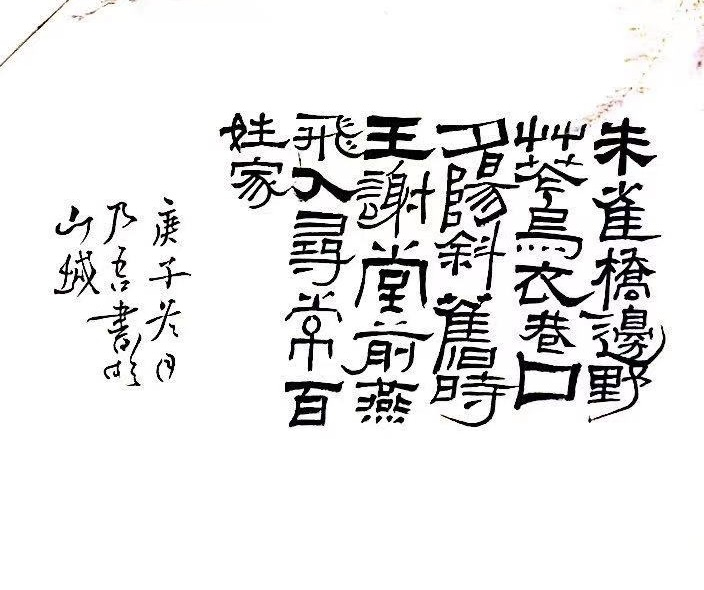 朱雀橋邊野
艸花烏衣巷口
夕陽斜舊時
王謝堂前燕
飛入尋常百
姓家
庚子冬月
乃吾書於
山城